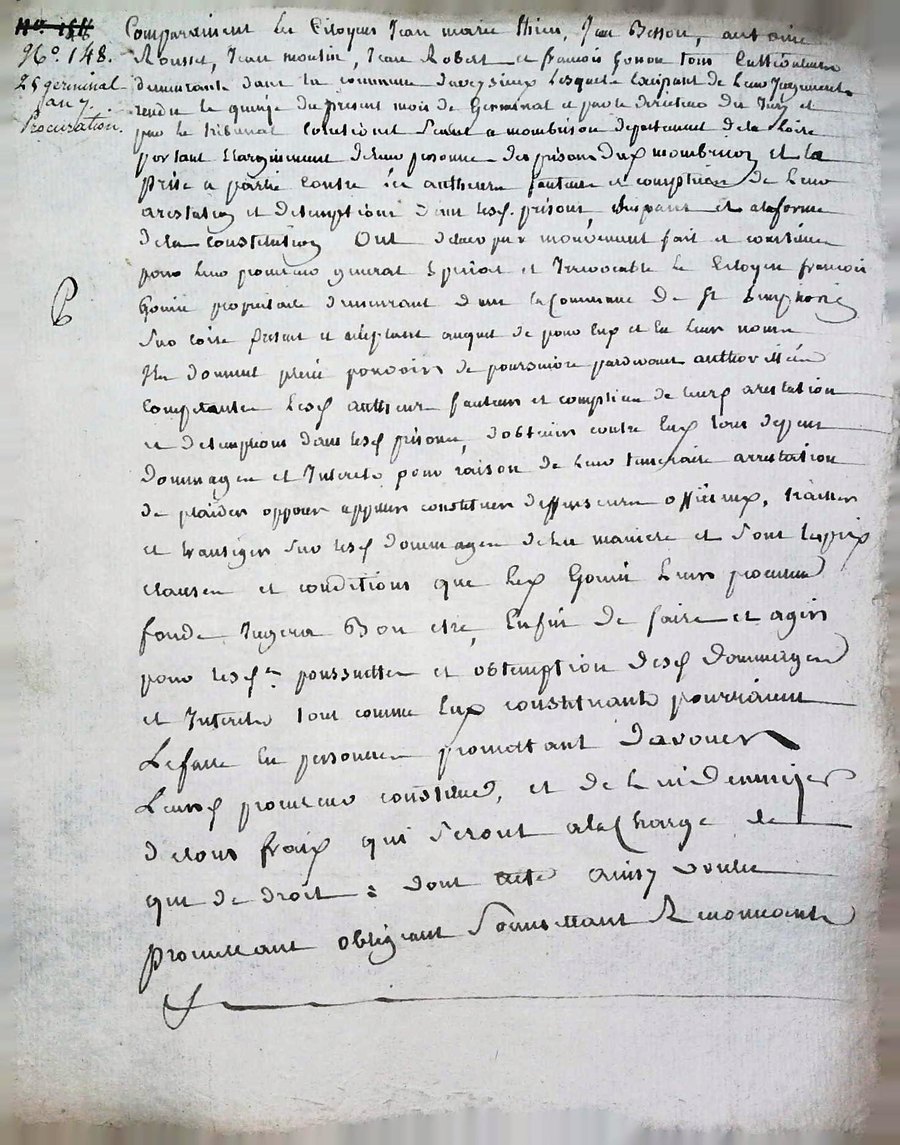 N.º 148.
25 germinal
an 7.
Procuration.
Comparaissent les Citoyens Jean marie thiers, Jean Besson, antoine
Rousset, Jean moulin, Jean Robert et francois Gonon tous Cultivateurs
demeurants dans la commune daveyzieux Lesquels Excipant de Leur Jugement
rendu le quinze du présent mois de Germinal et par le directeur du Jury et
par le tribunal Correctionel Seant a montbrison departement de la Loire
portant Elargissement de leur personne des prisons dud. montbrison et la
prise a partie contre les autheurs fauteurs et complices de Leur
arestation et detemptions dans lesd. prisons, et a la forme
de la constitution Ont de leur pur mouvement fait et constitué
pour leur procureur general Special et Irrevocable Le Citoyen francois
propriétaire demeurant dans la Commune de St Simphorien
Sur loire present et acceptant auquel de pour Eux et En Leur noms
Ils donnent plein pouvoir de poursuivre pardevant authorittés
Competantes Lesd. autheurs fauteurs et complices de leurs arestation
et detemptions dans lesd. prisons, d'obtenir contre Eux tous depens
dommages et Interets pour raison de Leur temeraire arrestation
de plaider opposer appeller constituer deffenseurs officieux, traitter
et transiger Sur lesd. dommages de la maniere et Sous les prix
clauses et conditions que Led. Leur procureur
fondé Jugera Bon etre, Enfin de faire et agir
pour lesd.es poursuittes et obtemption desd. dommages
et Interets tout comme Eux constituants pourraient
Le faire En personnes promettant D'avouer
Leursd. procureur constitué, et de L'indemniser
de tous fraix qui Seront a la Charge de
qui de droit : dont acte ainsy voulu
promettant obligeant Soumettant Renonceants